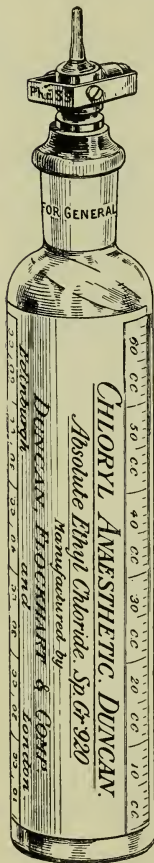 PRESS
FOR GENERAL
60 CC 50 CC 40 CC 30 CC 20 CC 10 CC
CHLORYL ANAESTHETIC. DUNCAN.
Absolute Ethyl Chloride. Sp. Gr. 920
Manufactured by
DUNCAN, FLOCKHART & COMP.
Edinburgh and London.